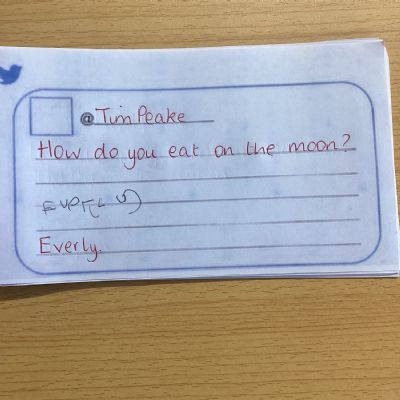 @Tim Peake
How do you eat on the moon?
Everly.